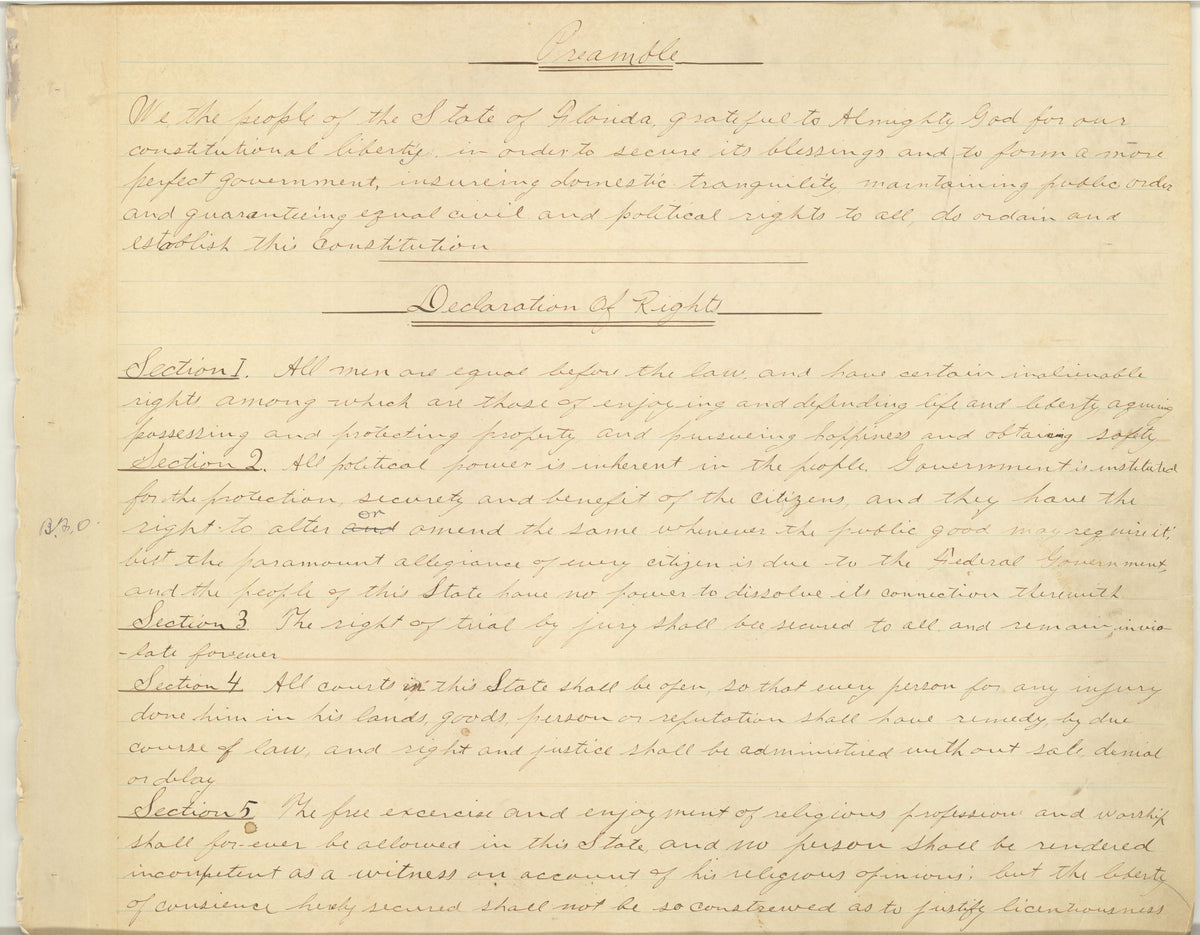 Preamble
We the people of the State of Florida, grateful to Almighty God for our
constitutional liberty, in order to secure its blessings and to form a more
perfect government, insureing domestic tranquility, maintaining public order
and guaranteeing equal civil and political rights to all, do ordain and
establish this constitution
Declaration Of Rights
Section 1. All men are equal before the law, and have certain inalienable
rights among which are those of enjoying and defending life and liberty, aquiring
possessing and protecting property, and pursueing happiness and obtaining safety
Section 2. All political power is inherent in the people. Government is instituted
for the protection, securety and benefit of the citizens, and they have the
or
B.F.O. right to alter and amend the same whenever the public good may require it;
but the paramount allegiance of every citizen is due to the Federal Government,
and the people of this State have no power to dissolve its connection therewith
Section 3 The right of trial by jury shall bee secured to all and remain invio
-late forever
Section 4 All courts in this State shall be open, so that every person for any injury
done him in his lands, goods, person or reputation shall have remedy, by due
course of law, and right and justice shall be administired without sale, denial
or delay
Section 5 The free excercise and enjoyment of religious profession and worship
shall for-ever be allowed in this State, and no person shall be rendered
incompetent as a witness on account of his religious opinions; but the liberty
of consience hereby secured shall not be so construewed as to justify licentiousness